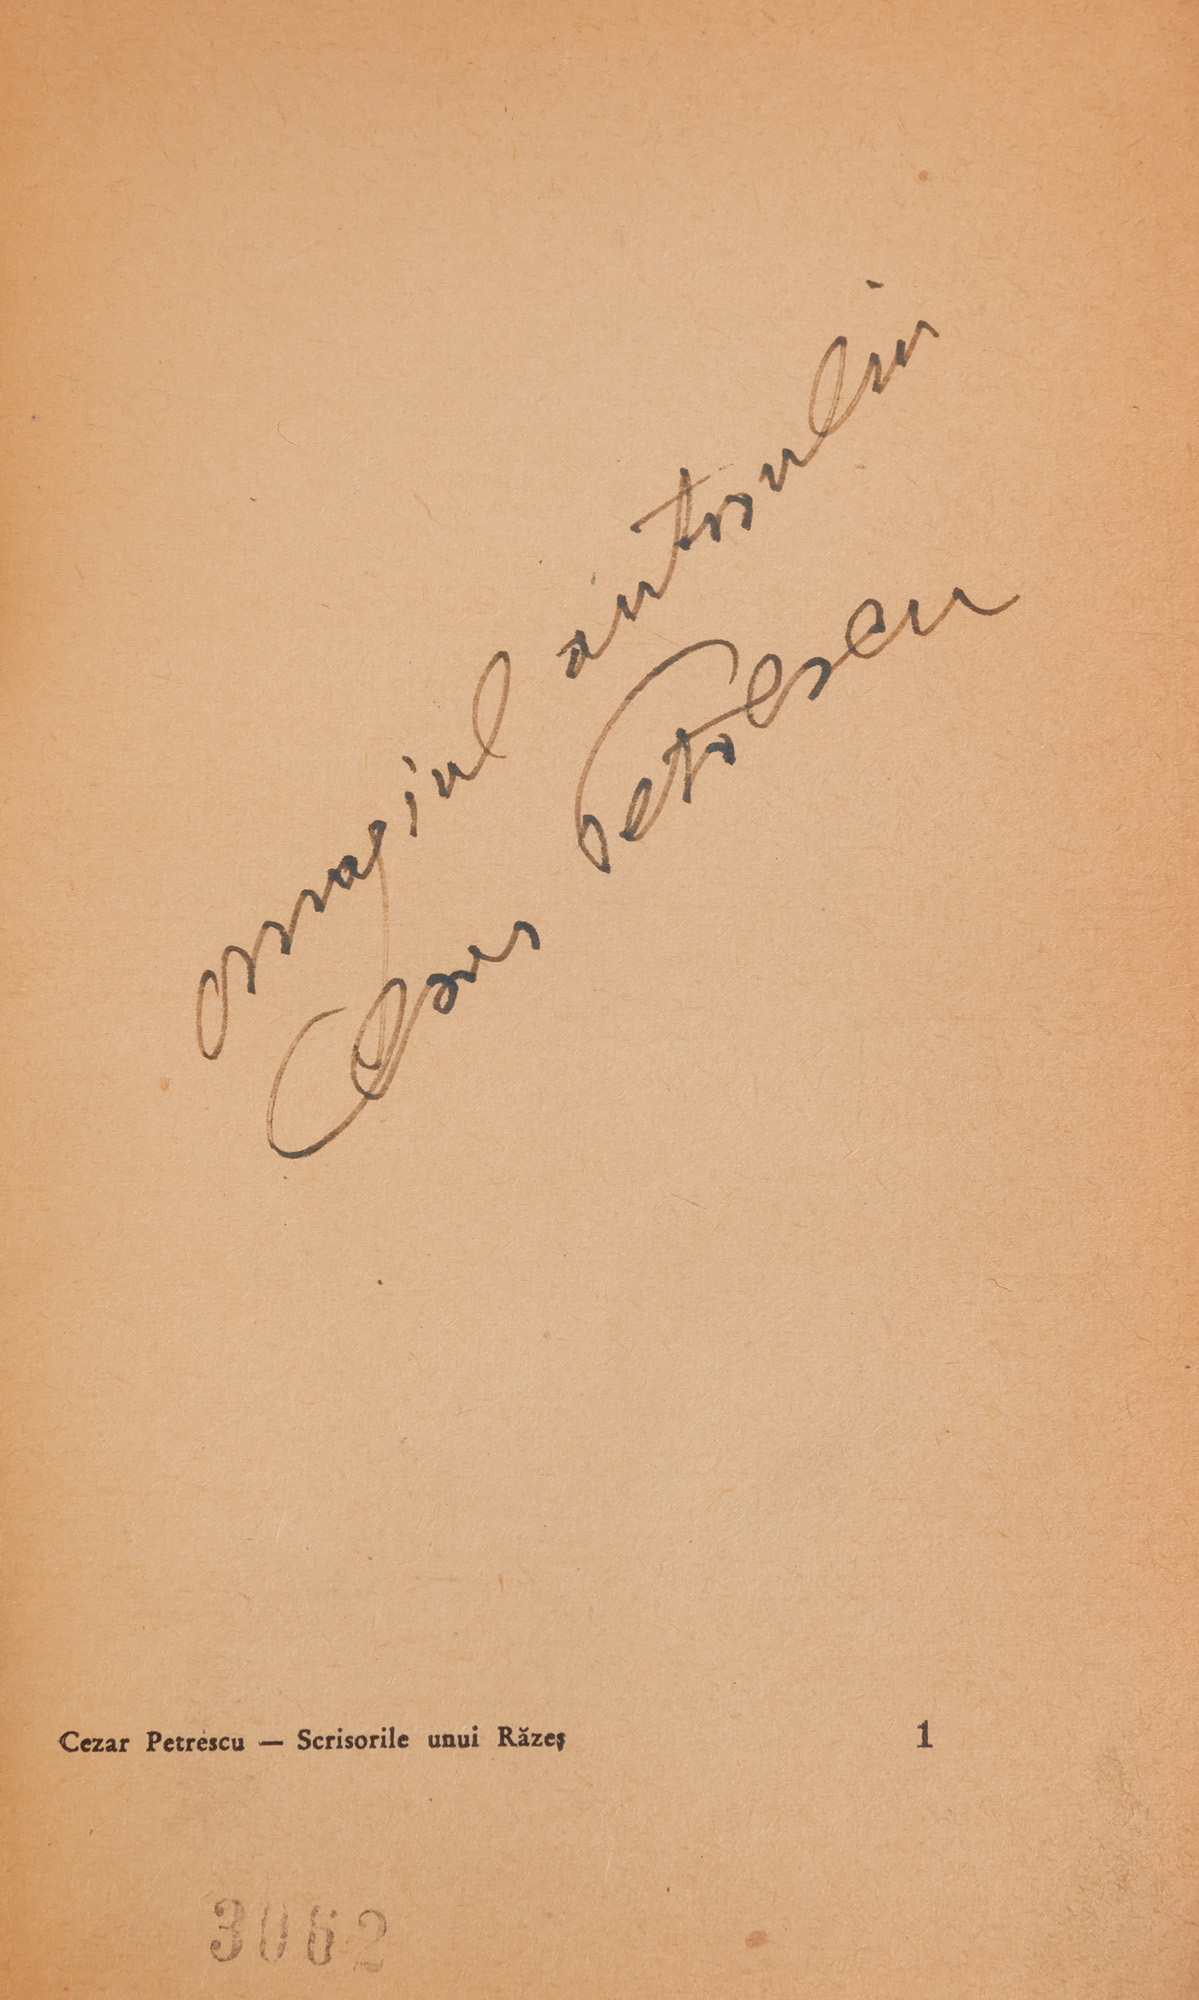 omagiul autorului
Cezar Petrescu
Cezar Petrescu — Scrisorile unui Răzeș 1
3062